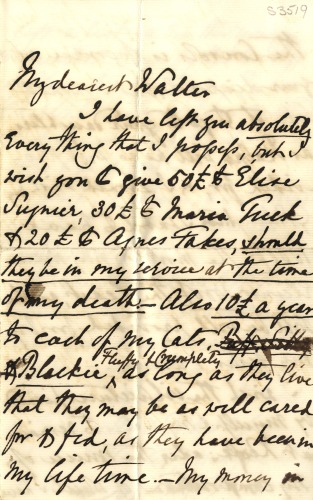 S3519
My dearest Walter
I have left you absolutely
Everything that I possess, but I
wish you to give 50£ to Elise
30£ to Maria Tuck
& 20£ to Agnes Fakes, should
they be in my service at the time
of my death. - Also 10£ a year
to each of my Cats,
Fluffy &
& Blackie, as long as they live
that they may be as well cared
for & fed, as they have been in
my life time. - My money in